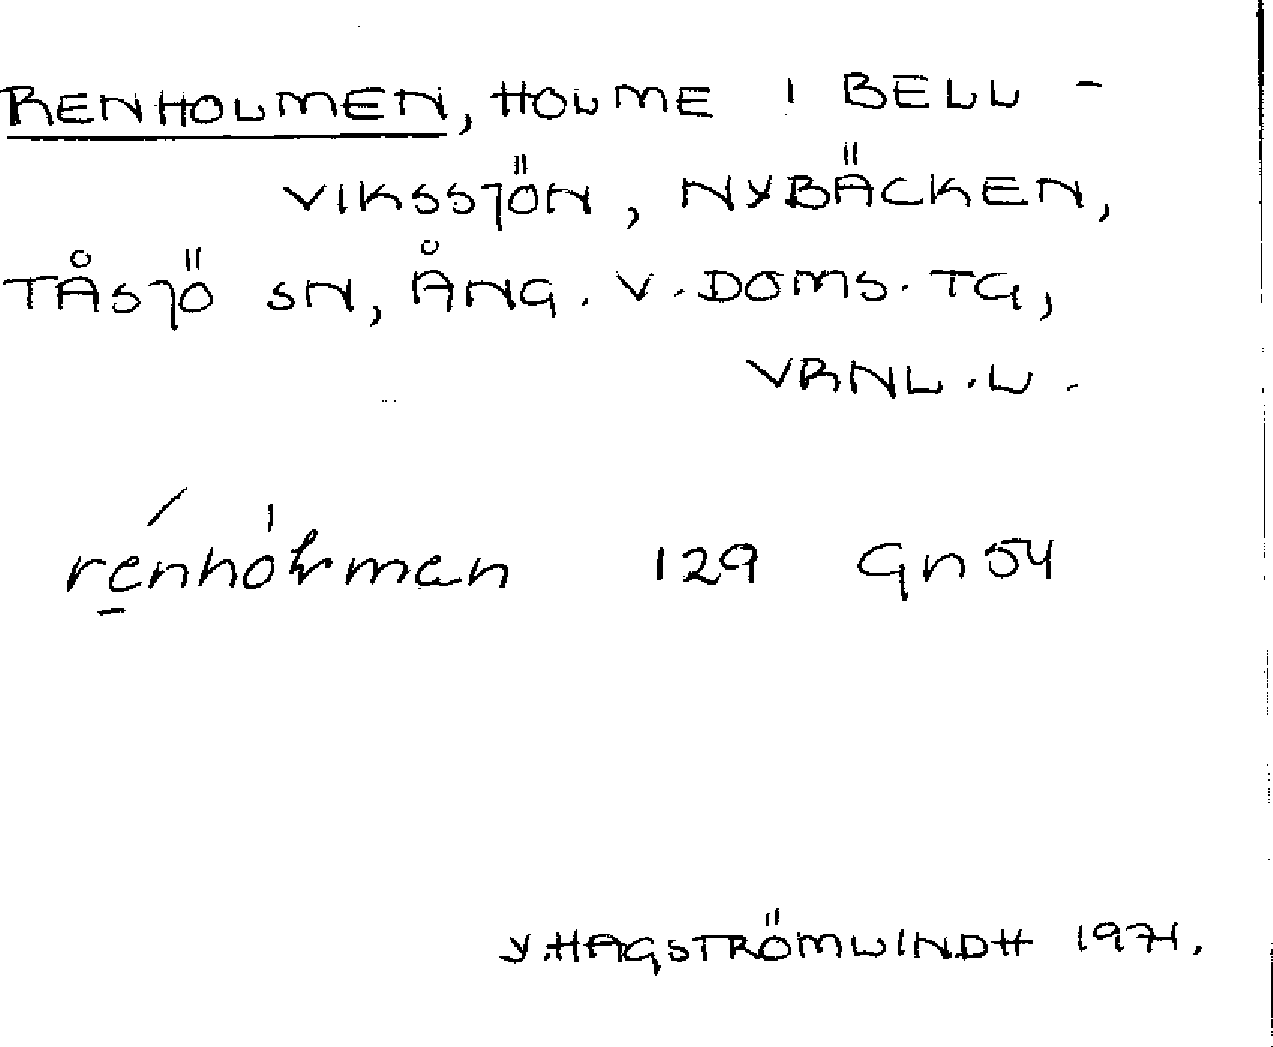 RENHOLMEN, HOLME I BELL-
VIKSSJÖN, NYBÄCKEN,
TÅSJÖ SN, ÅNG. V. DOMS. TG,
VRNL. L.
129 Gn 54
Y. HAGSTRÖMLINDH 1971.